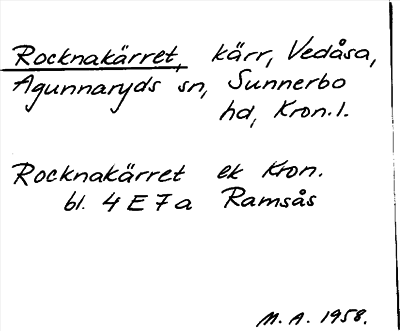 Rocknakärret, kärr, Vedåsa,
Agunnaryds sn, Sunnerbo
hd, Kron.l.
Rocknakärret ek Kron.
bl. 4 E 7 a Ramsås
M. A. 1958.